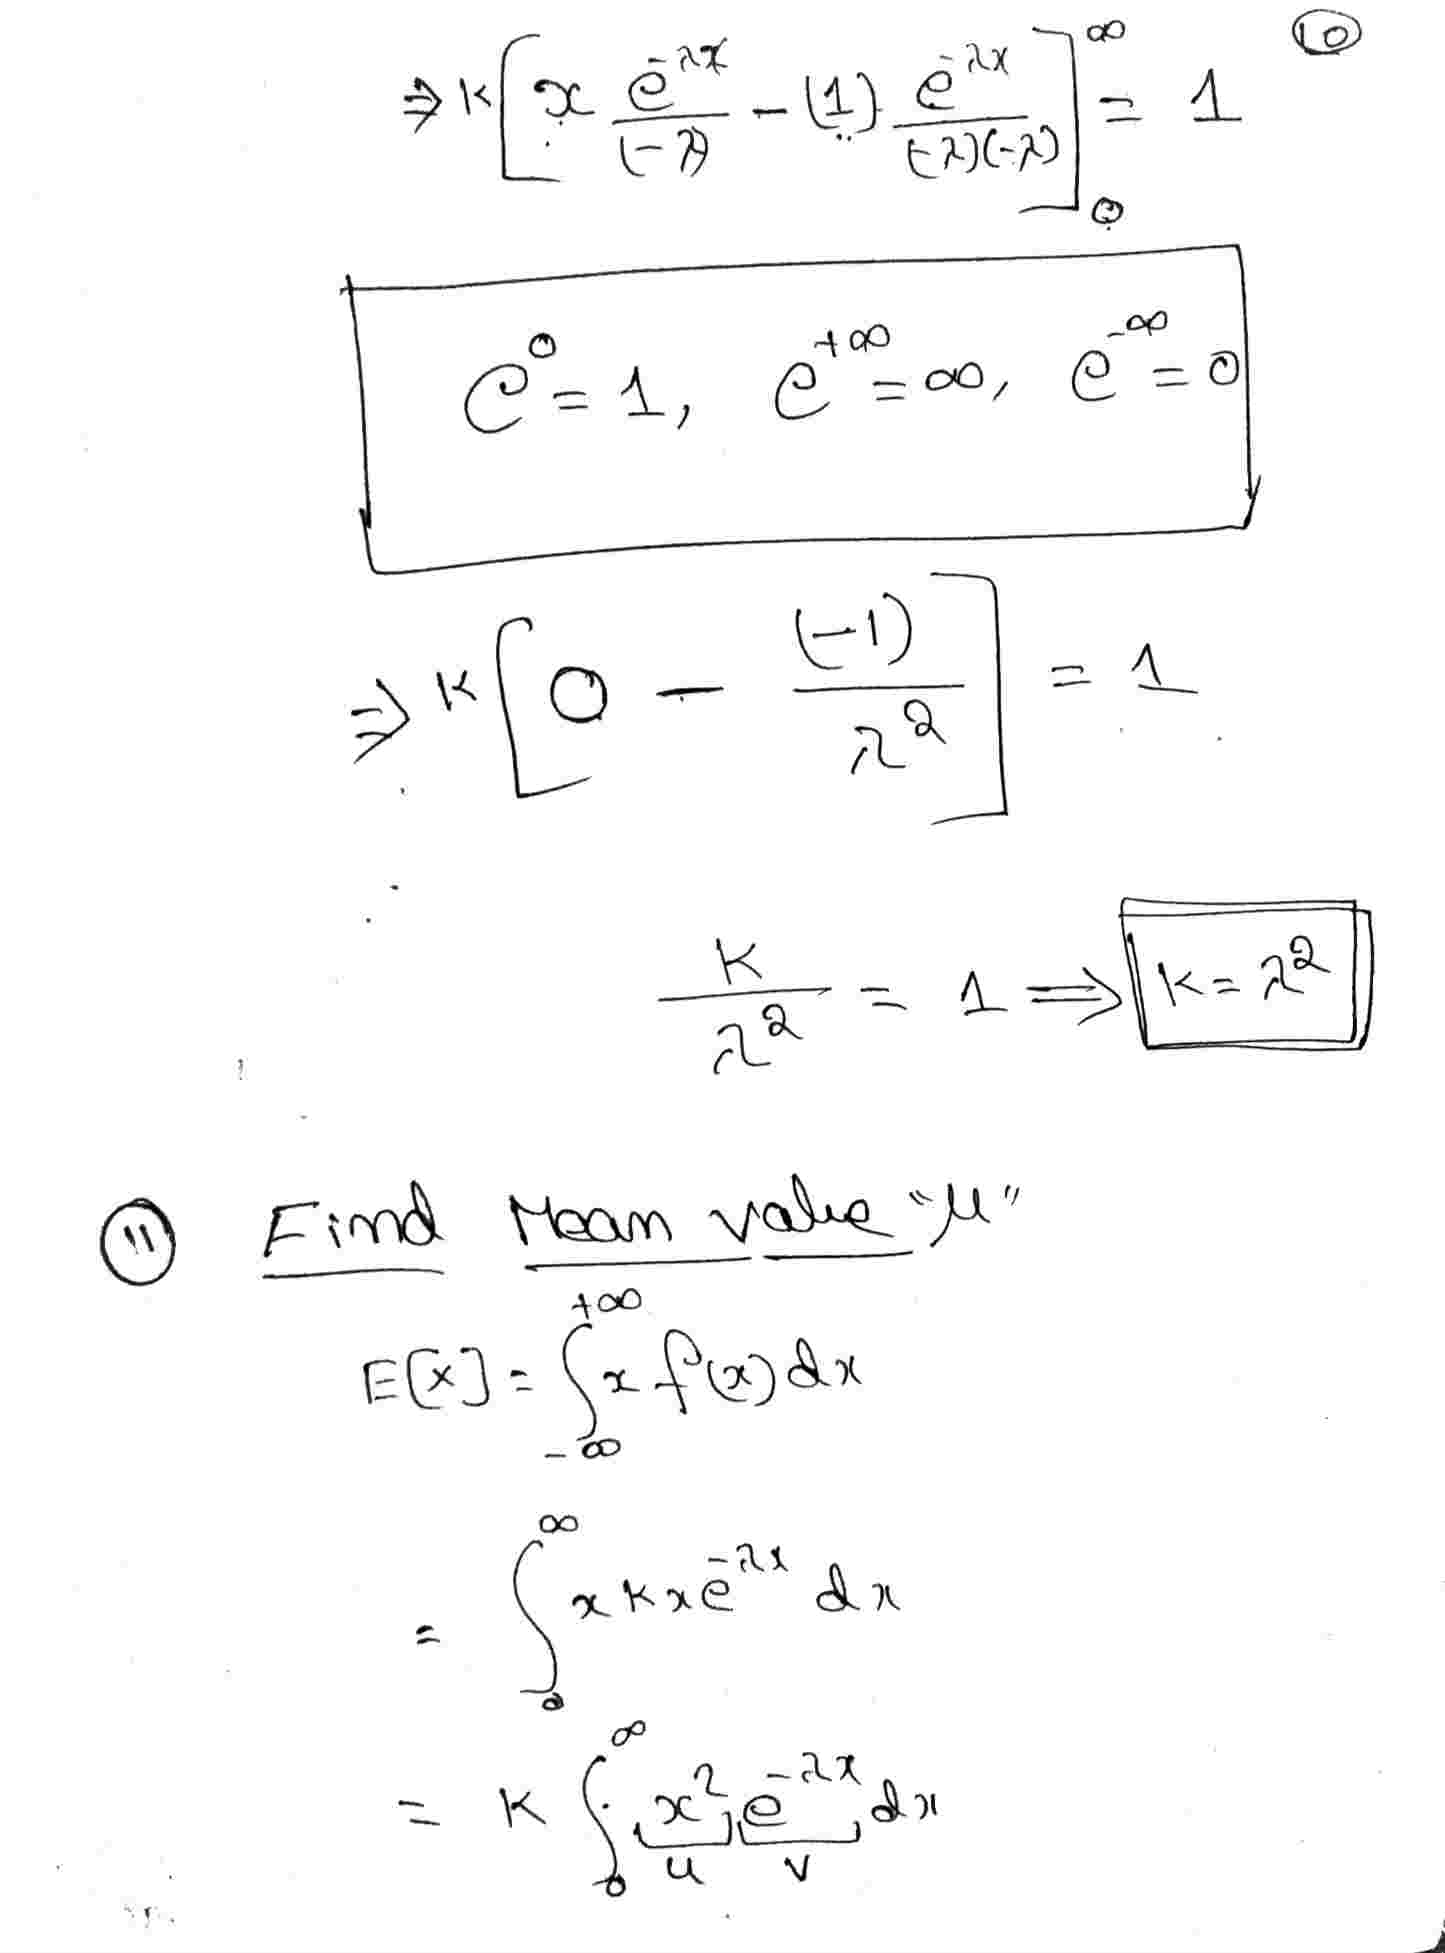 10
⇒ K [ x e^{-λx}/(-λ) - (1) e^{-λx}/((-λ)(-λ)) ]_0^∞ = 1
e^0 = 1, e^{+∞} = ∞, e^{-∞} = 0
⇒ K [ 0 - (-1)/λ^2 ] = 1
K/λ^2 = 1 ⇒ K = λ^2
11 Find Mean value "μ"
E[x] = ∫_{-∞}^{+∞} x f(x) dx
= ∫_0^∞ x K x e^{-λx} dx
= K ∫_0^∞ x^2 e^{-λx} dx
u v